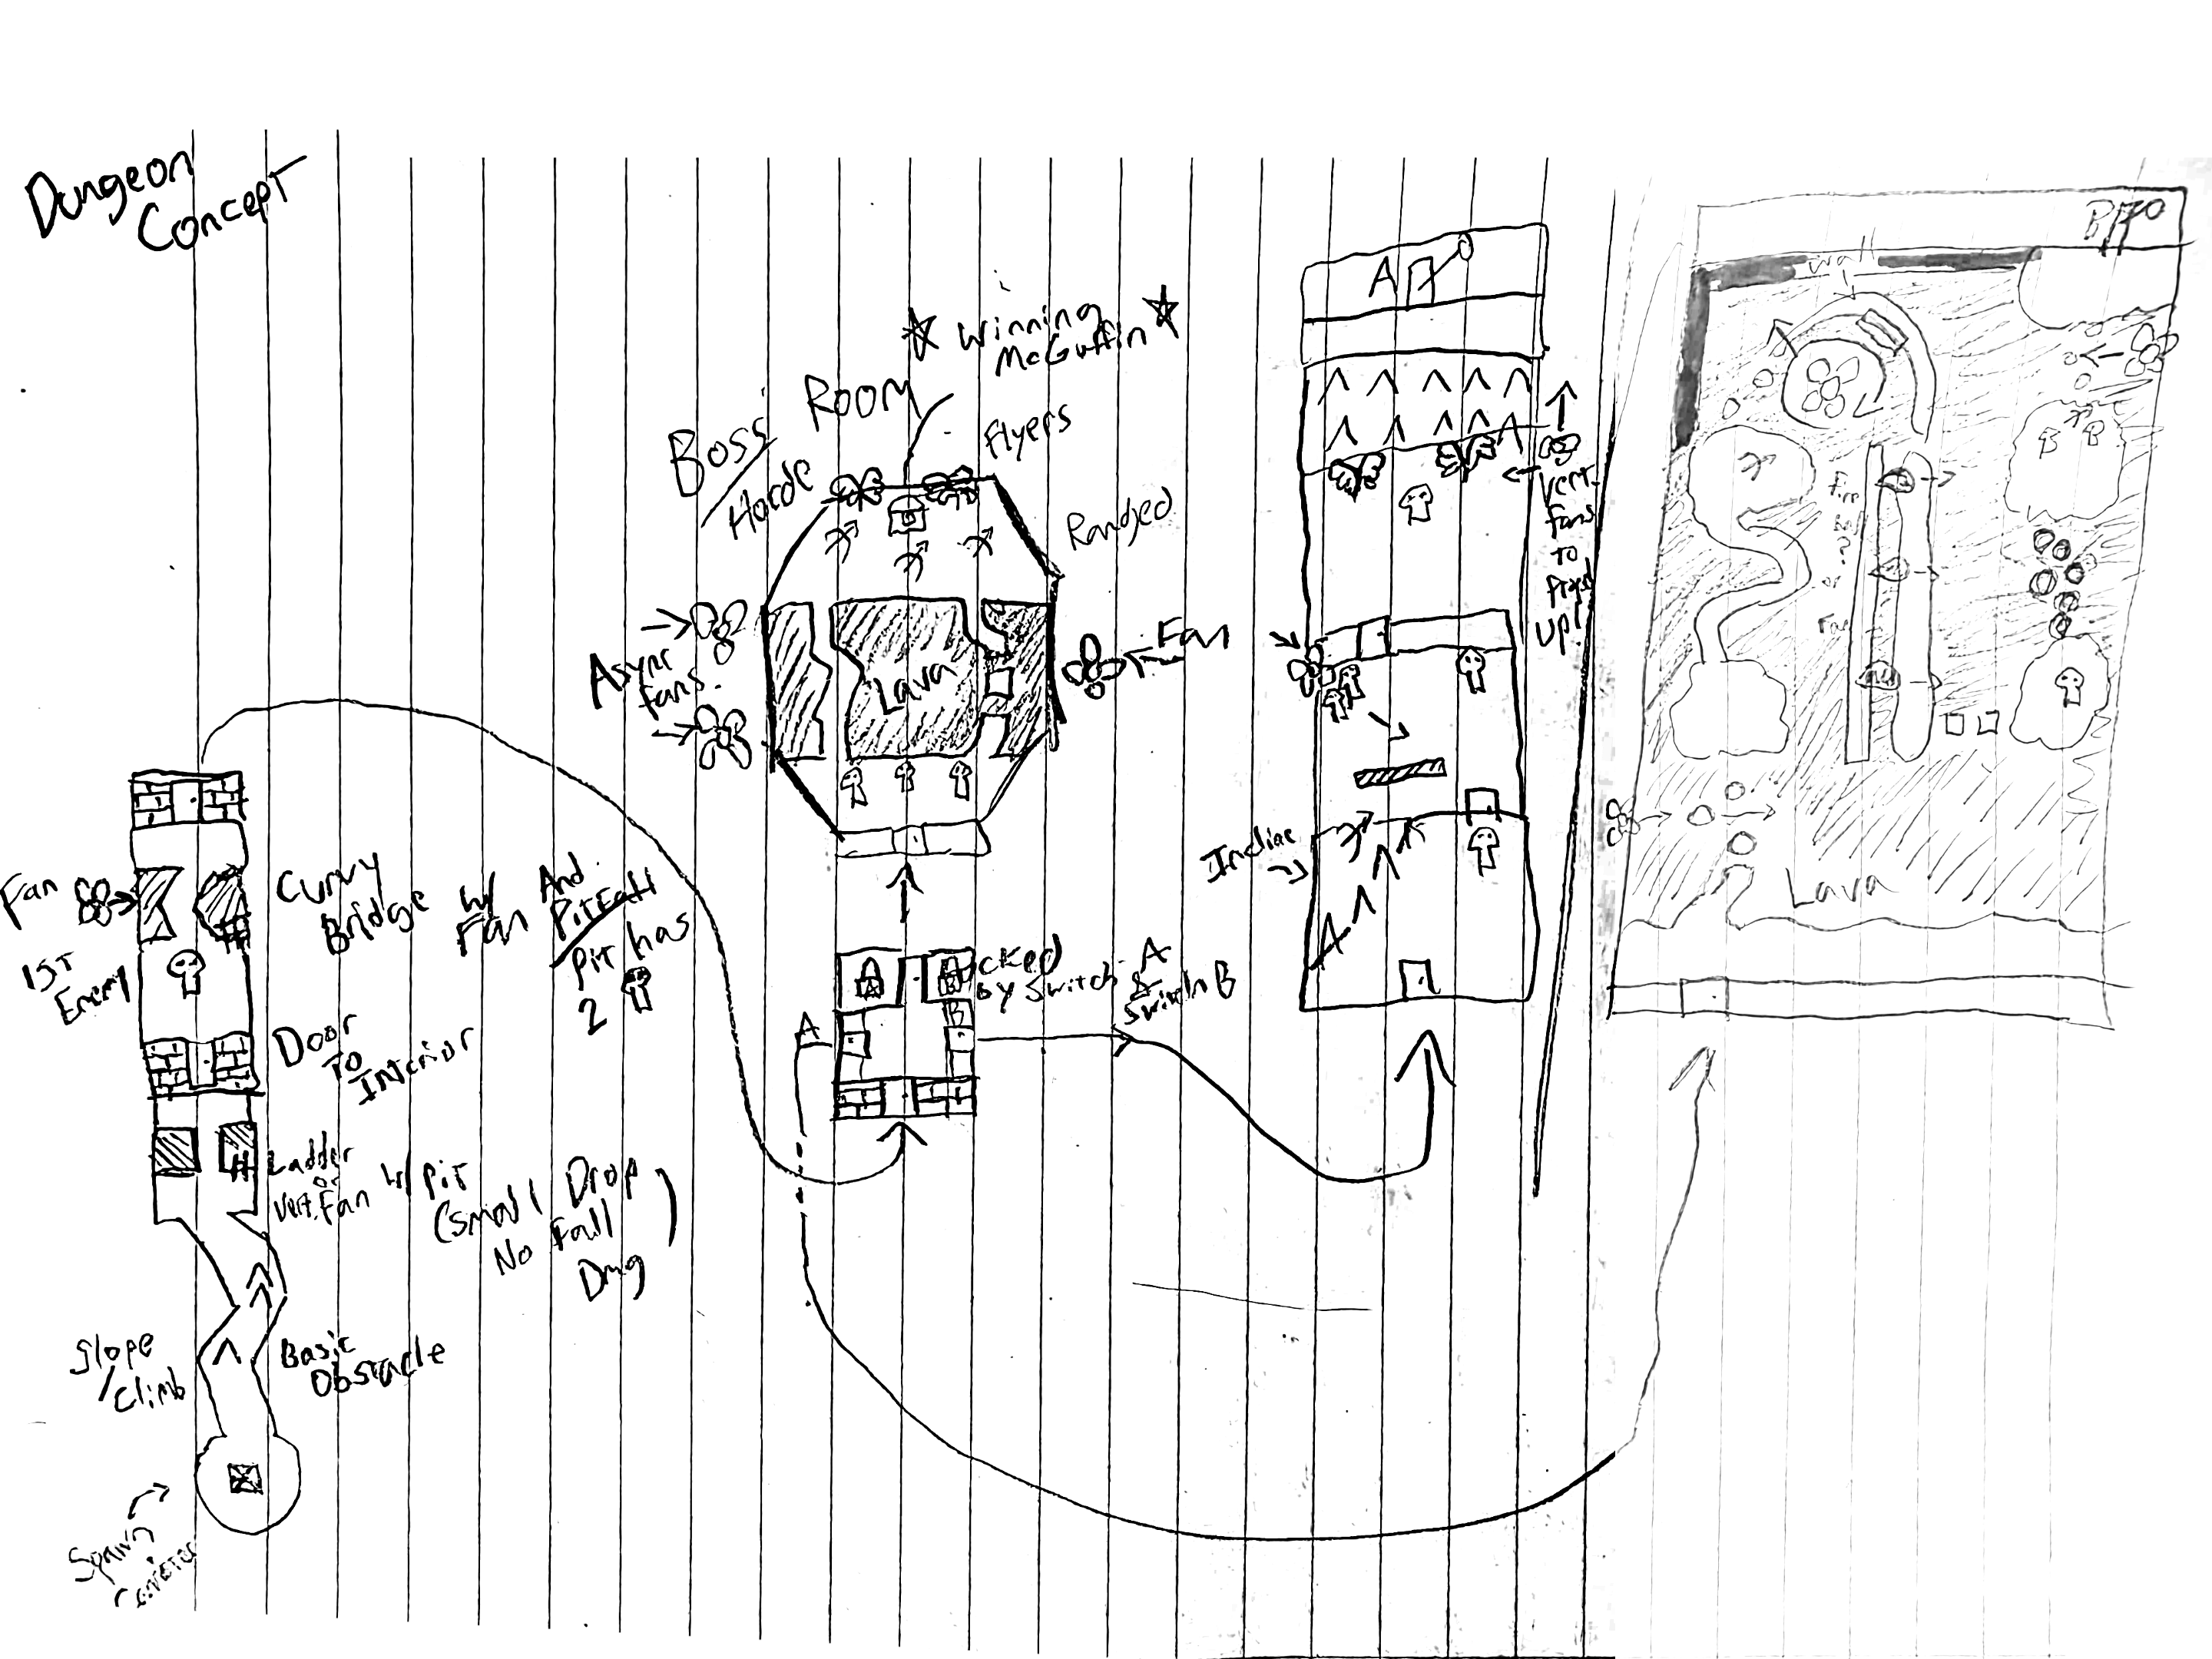 Dungeon
Concept
☆ Winning ☆
McGuffin
Boss Room
/ Horde
Flyers
Ranged
Async
Fans.
Lava
Fan
Fan
1st
Enemy
Curvy
Bridge w/
Fan And
Pitfall
Pit has
2
Door
To
Interior
Ladder
or
Vert. Fan
w/ Pit
(Small Drop
No Fall
Dmg)
Slope
/ Climb
Basic
Obstacle
Spawn
A
B
A
B
by Switch A
&
Switch B
A
Vert.
Fans
to
Up!
A
Wall
Lava